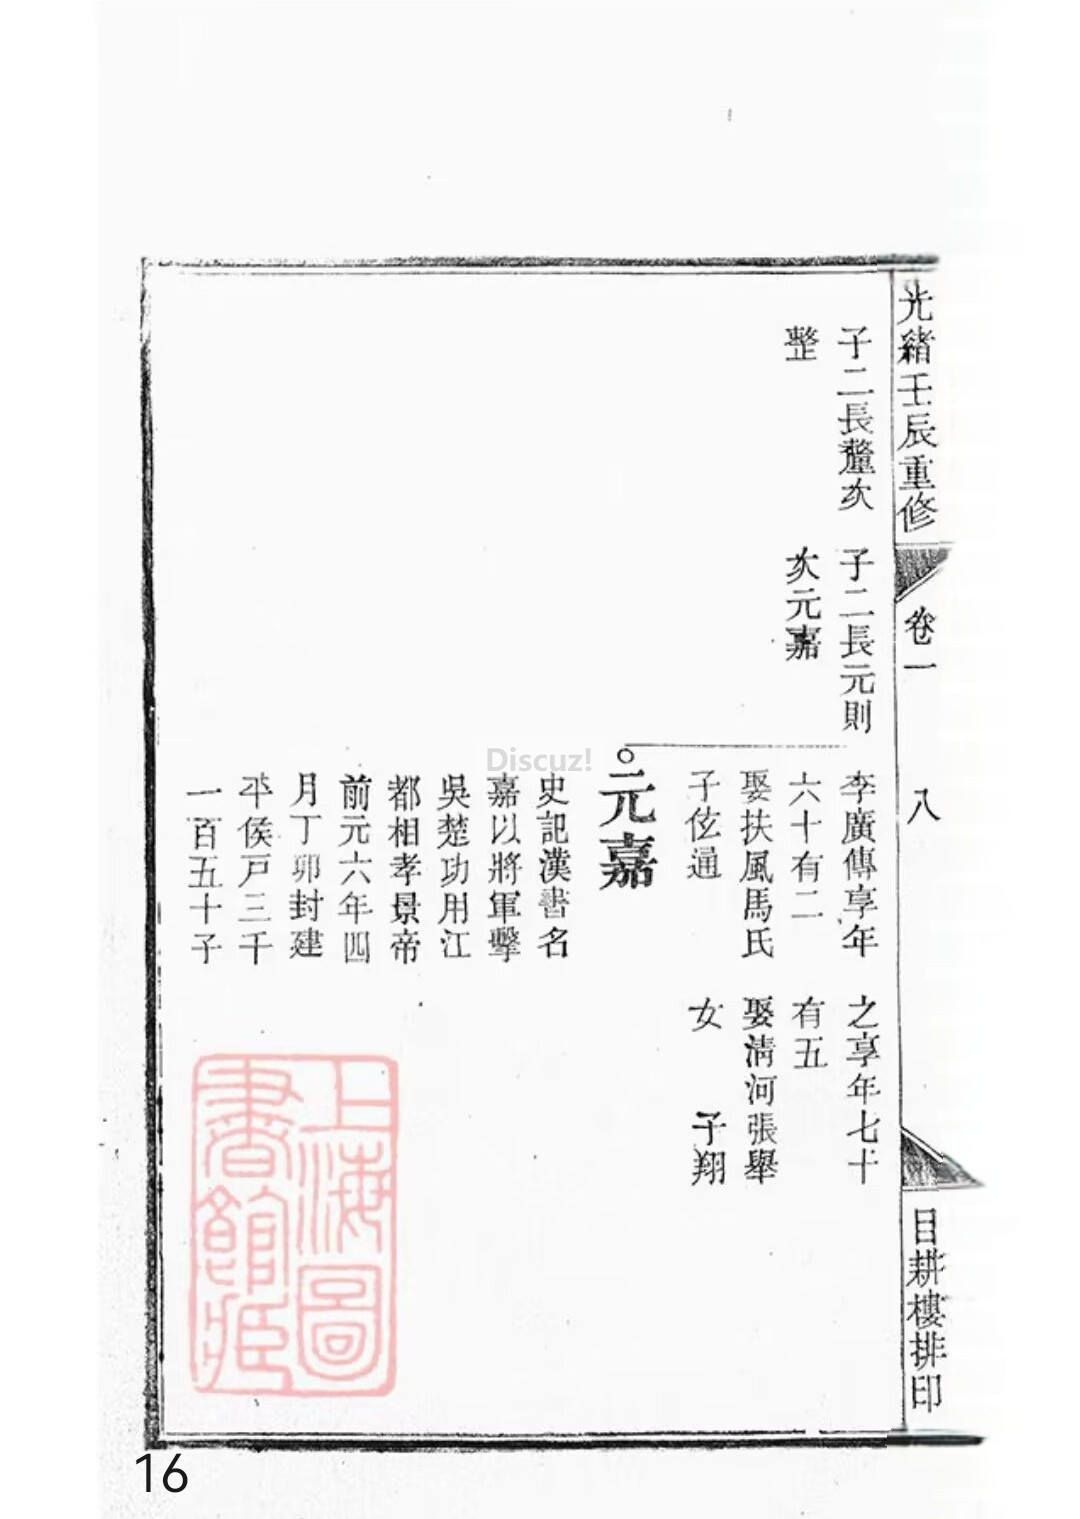 光緒壬辰重修
卷一
八
目耕樓排印
子二長釐次
整
子二長元則
次元嘉
李廣傳享年
六十有二
娶扶風馬氏
子伭通
之享年七十
有五
娶清河張舉
女　子翔
元嘉
史記漢書名
嘉以將軍擊
吳楚功用江
都相孝景帝
前元六年四
月丁卯封建
平侯戸三千
一百五十子
上海圖
書館藏
Discuz!
16